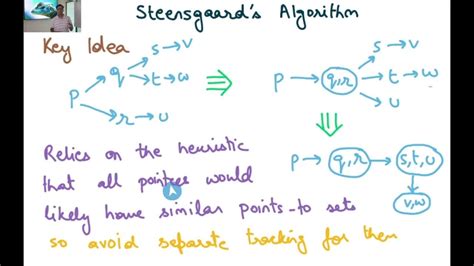 Steensgaard's Algorithm
Key Idea
p → q → s → v
q → t → w
p → r → u
⇒
p → q,r → s → v
q,r → t → w
q,r → u
⇓
p → q,r → s,t,u
v,w
Relies on the heuristic
that all pointees would
likely have similar points-to sets
so avoid separate tracking for them